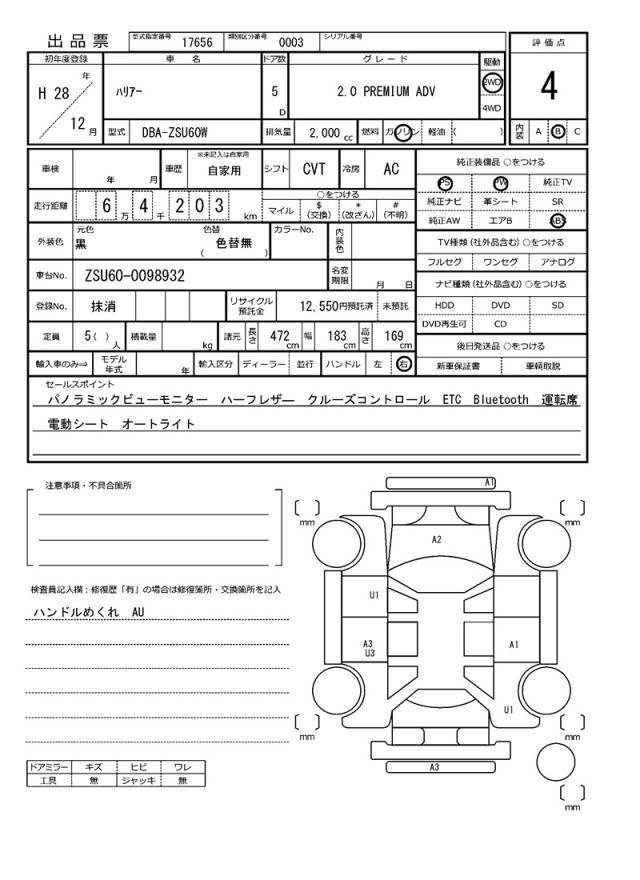 出品票 型式指定番号 17656 類別区分番号 0003 シリアル番号
評価点
初年度登録 車名 ドア数 グレード 駆動
H 28 年 12 月 ﾊﾘｱｰ 5 D 2.0 PREMIUM ADV 2WD 4WD
4
型式 DBA-ZSU60W 排気量 2,000 cc 燃料 ガソリン 軽油 ( ) 内装 A B C
車検 年 月 車歴 ※未記入は自家用 自家用 シフト CVT 冷房 AC
純正装備品 ○をつける
PS PW 純正TV
純正ナビ 革シート SR
純正AW エアB ABS
走行距離 6 万 4 千 2 0 3 km
○をつける
マイル $ (交換) * (改ざん) # (不明)
外装色 元色 黒 色替 色替無 ( ) カラーNo. 内装色
TV種類 (社外品含む) ○をつける
フルセグ ワンセグ アナログ
車台No. ZSU60-0098932 名変期限 月 日
ナビ種類 (社外品含む) ○をつける
HDD DVD SD
DVD再生可 CD
登録No. 抹消 リサイクル預託金 12,550円預託済 未預託
定員 5( ) 人 積載量 kg 諸元 長さ 472 cm 幅 183 cm 高さ 169 cm
後日発送品 ○をつける
新車保証書 車輌取説
輸入車のみ⇒ モデル年式 年 輸入区分 ディーラー 並行 ハンドル 左 右
セールスポイント
パノラミックビューモニター ハーフレザー クルーズコントロール ETC Bluetooth 運転席
電動シート オートライト
注意事項・不具合箇所
検査員記入欄：修復歴「有」の場合は修復箇所・交換箇所を記入
ハンドルめくれ AU
A1
mm
mm
A2
U1
A3
U3
A1
U1
mm
mm
A3
mm
ドアミラー キズ ヒビ ワレ
工具 無 ジャッキ 無